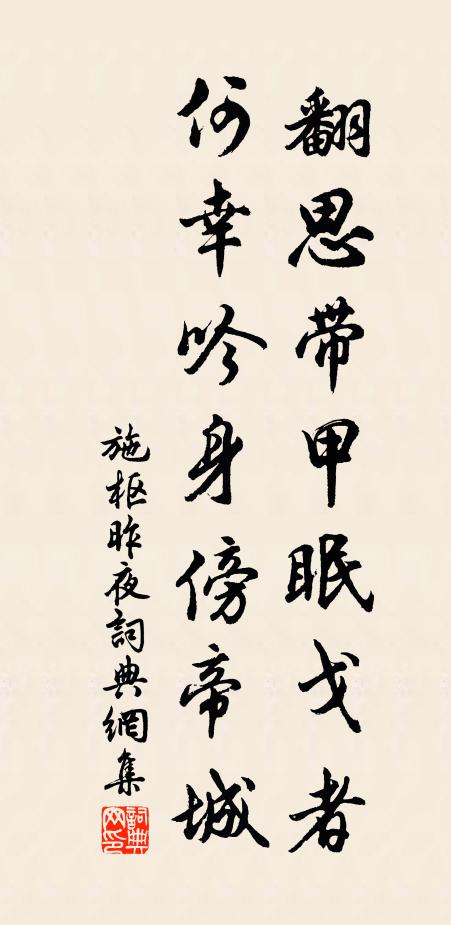 翻思带甲眠戈者
何幸吟身傍帝城
施枢昨夜詞典網集
詞典网印